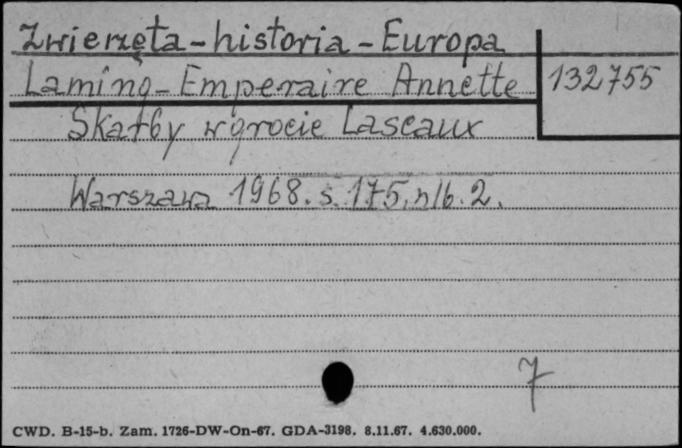 Zwierzęta - historia - Europa
Laming - Emperaire Annette
132755
Skarby w grocie Lascaux
Warszawa 1968. s. 175, nlb. 2.
7
CWD. B-15-b. Zam. 1726-DW-On-67. GDA-3198. 8.11.67. 4.630.000.